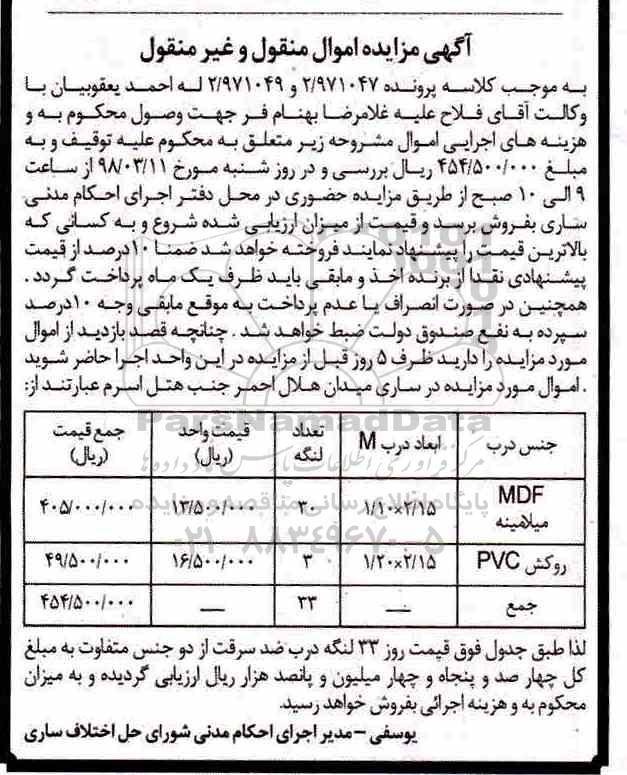 آگهی مزایده اموال منقول و غیر منقول
به موجب کلاسه پرونده ۲/۹۷۱۰۴۷ و ۲/۹۷۱۰۴۹ له احمد یعقوبیان با
وکالت آقای فلاح علیه غلامرضا بهنام فر جهت وصول محکوم به و
هزینه های اجرایی اموال مشروحه زیر متعلق به محکوم علیه توقیف و به
مبلغ ۴۵۴/۵۰۰/۰۰۰ ریال بررسی و در روز شنبه مورخ ۹۸/۰۳/۱۱ از ساعت
۹ الی ۱۰ صبح از طریق مزایده حضوری در محل دفتر اجرای احکام مدنی
ساری بفروش برسد و قیمت از میزان ارزیابی شده شروع و به کسانی که
بالاترین قیمت را پیشنهاد نمایند فروخته خواهد شد ضمنا ۱۰درصد از قیمت
پیشنهادی نقدا از برنده اخذ و مابقی باید ظرف یک ماه پرداخت گردد .
همچنین در صورت انصراف یا عدم پرداخت به موقع مابقی وجه ۱۰درصد
سپرده به نفع صندوق دولت ضبط خواهد شد . چنانچه قصد بازدید از اموال
مورد مزایده را دارید ظرف ۵ روز قبل از مزایده در این واحد اجرا حاضر شوید
. اموال مورد مزایده در ساری میدان هلال احمر جنب هتل اسرم عبارتند از:
جنس درب ابعاد درب M تعداد لنگه قیمت واحد (ریال) جمع قیمت (ریال)
MDF میلامینه ۱/۱۰×۲/۱۵ ۳۰ ۱۳/۵۰۰/۰۰۰ ۴۰۵/۰۰۰/۰۰۰
روکش PVC ۱/۲۰×۲/۱۵ ۳ ۱۶/۵۰۰/۰۰۰ ۴۹/۵۰۰/۰۰۰
جمع — ۳۳ — ۴۵۴/۵۰۰/۰۰۰
لذا طبق جدول فوق قیمت روز ۳۳ لنگه درب ضد سرقت از دو جنس متفاوت به مبلغ
کل چهار صد و پنجاه و چهار میلیون و پانصد هزار ریال ارزیابی گردیده و به میزان
محکوم به و هزینه اجرائی بفروش خواهد رسید.
یوسفی – مدیر اجرای احکام مدنی شورای حل اختلاف ساری
ParsNamadData
مرکز فرآوری اطلاعات پارس نماد داده ها
پایگاه اطلاع رسانی مناقصه و مزایده
۰۲۱-۸۸۳۴۹۶۷۰-۵